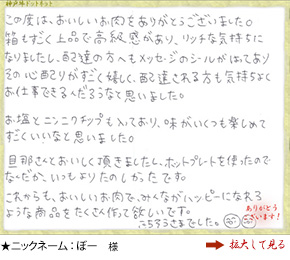 神戸牛ドットネット
この度は、おいしいお肉をありがとうございました。
箱もすごく上品で高級感があり、リッチな気持ちに
なりましたし、配達の方へもメッセージのシールがはってあり
その心配りがすごく嬉しく、配達される方も気持ちよく
お仕事できるんだろうなと思いました。
お塩とニンニクチップも入っており、味がいくつも楽しめて
すごくいいなと思いました。
旦那さんとおいしく頂きましたし、ホットプレートを使ったので
なんだか、いつもよりたのしかったです。
これからも、おいしいお肉で、みんながハッピーになれる
ような商品をたくさん作って欲しいです。
ごちそうさまでした。
ありがとう
ございます!
★ニックネーム:ぼー 様
拡大して見る